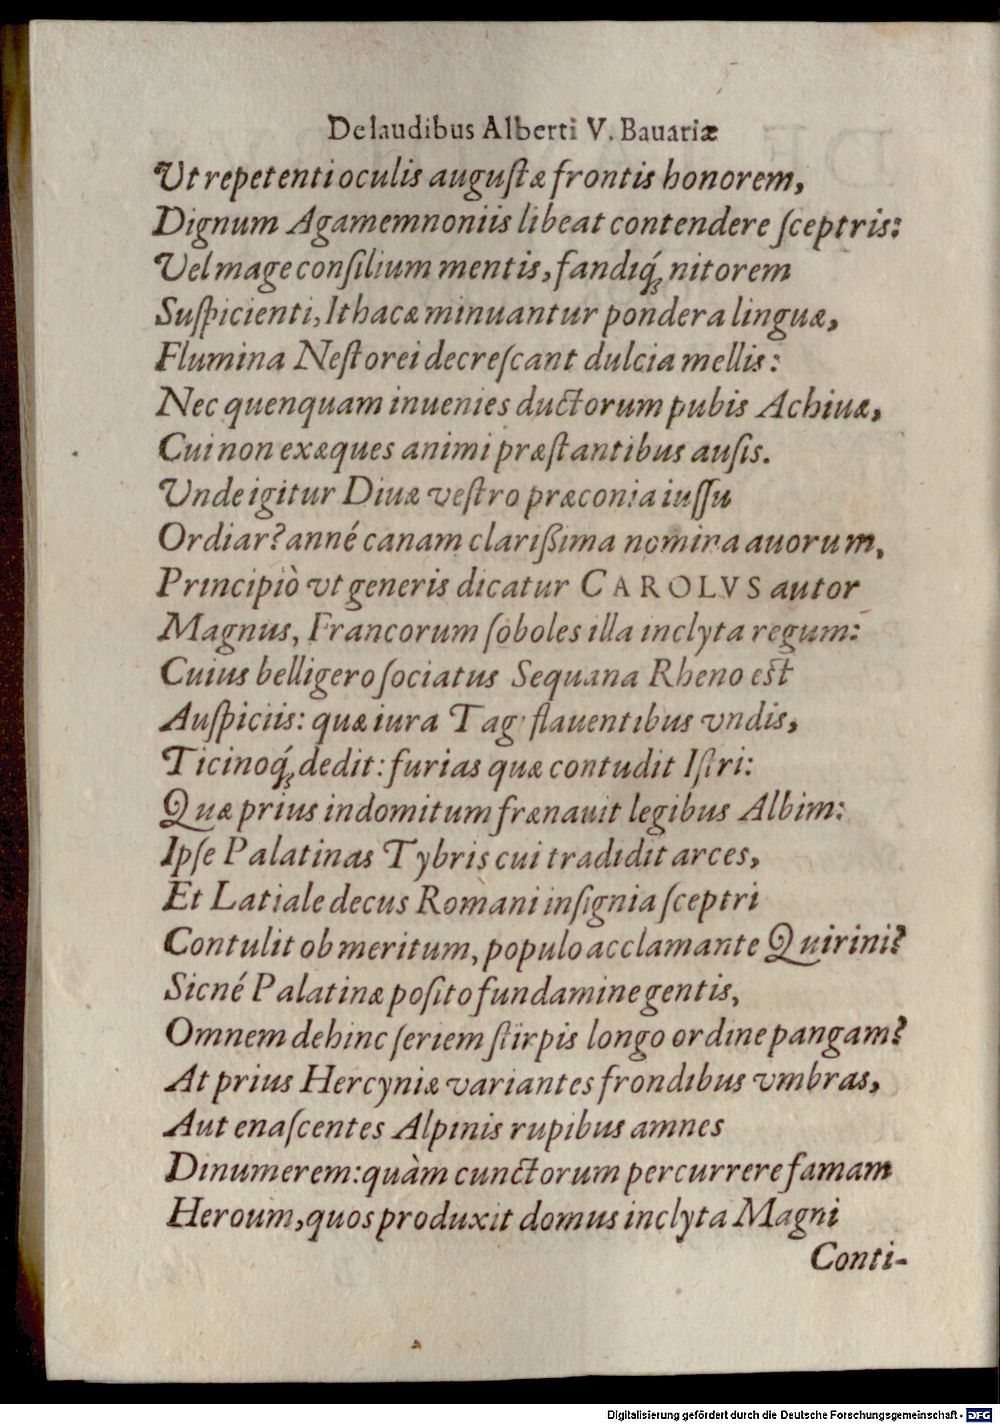 De laudibus Alberti V. Bauariæ
Vt repetenti oculis auguſtæ frontis honorem,
Dignum Agamemnoniis libeat contendere ſceptris:
Vel mage conſilium mentis, fandiq́ꝫ nitorem
Suſpicienti, Ithacæ minuantur pondera linguæ,
Flumina Neſtorei decreſcant dulcia mellis:
Nec quenquam inuenies ductorum pubis Achiuæ,
Cui non exæques animi præſtantibus auſis.
Vnde igitur Diuæ veſtro præconia iuſſu
Ordiar? anné canam clariſsima nomina auorum,
Principiò vt generis dicatur CAROLVS autor
Magnus, Francorum ſoboles illa inclyta regum:
Cuius belligero ſociatus Sequana Rheno eſt
Auſpiciis: quæ iura Tag flauentibus vndis,
Ticinoq́ꝫ dedit: furias quæ contudit Iſtri:
Quæ prius indomitum frænauit legibus Albim:
Ipſe Palatinas Tybris cui tradidit arces,
Et Latiale decus Romani inſignia ſceptri
Contulit ob meritum, populo acclamante Quirini?
Sicné Palatinæ poſito fundamine gentis,
Omnem dehinc ſeriem ſtirpis longo ordine pangam?
At prius Hercyniæ variantes frondibus vmbras,
Aut enaſcentes Alpinis rupibus amnes
Dinumerem: quàm cunctorum percurrere famam
Heroum, quos produxit domus inclyta Magni
Conti-
Digitalisierung gefördert durch die Deutsche Forschungsgemeinschaft - DFG